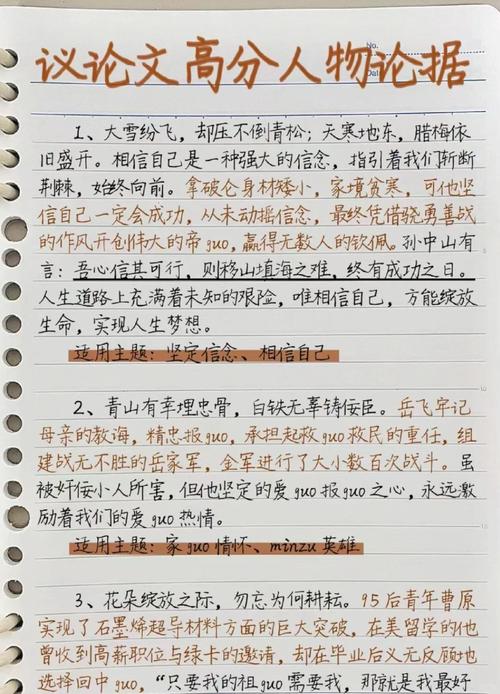 议论文高分人物论据
No.
Dat
1、大雪纷飞，却压不倒青松；天寒地东，腊梅依
旧盛开。相信自己是一种强大的信念，指引着我们斩断
荆棘，始终向前。拿破仑身材矮小，家境贫寒，可他坚
信自己一定会成功，从未动摇信念，最终凭借骁勇善战
的作风开创伟大的帝guo，赢得无数人的钦佩。孙中山有
言：吾心信其可行，则移山填海之难，终有成功之日。
人生道路上充满着未知的艰险，唯相信自己，方能绽放
生命，实现人生梦想。
适用主题：坚定信念、相信自己
2、青山有幸埋忠骨，白铁无辜铸佞臣。岳飞牢记
母亲的教诲，精忠报guo，承担起救guo救民的重任，组
建战无不胜的岳家军，金军进行了大小数百次战斗。虽
被奸佞小人所害，但他坚定的爱guo报guo之心，永远激
励着我们的爱guo热情。
适用主题：家guo情怀、minzu英雄
3、花朵绽放之际，勿忘为何耕耘。95后青年曹原
实现了石墨烯超导材料方面的巨大突破，在美留学的他
曾收到高薪职位与绿卡的邀请，却在毕业后义无反顾地
选择回中guo，“只要我的祖guo需要我，那就是我最好